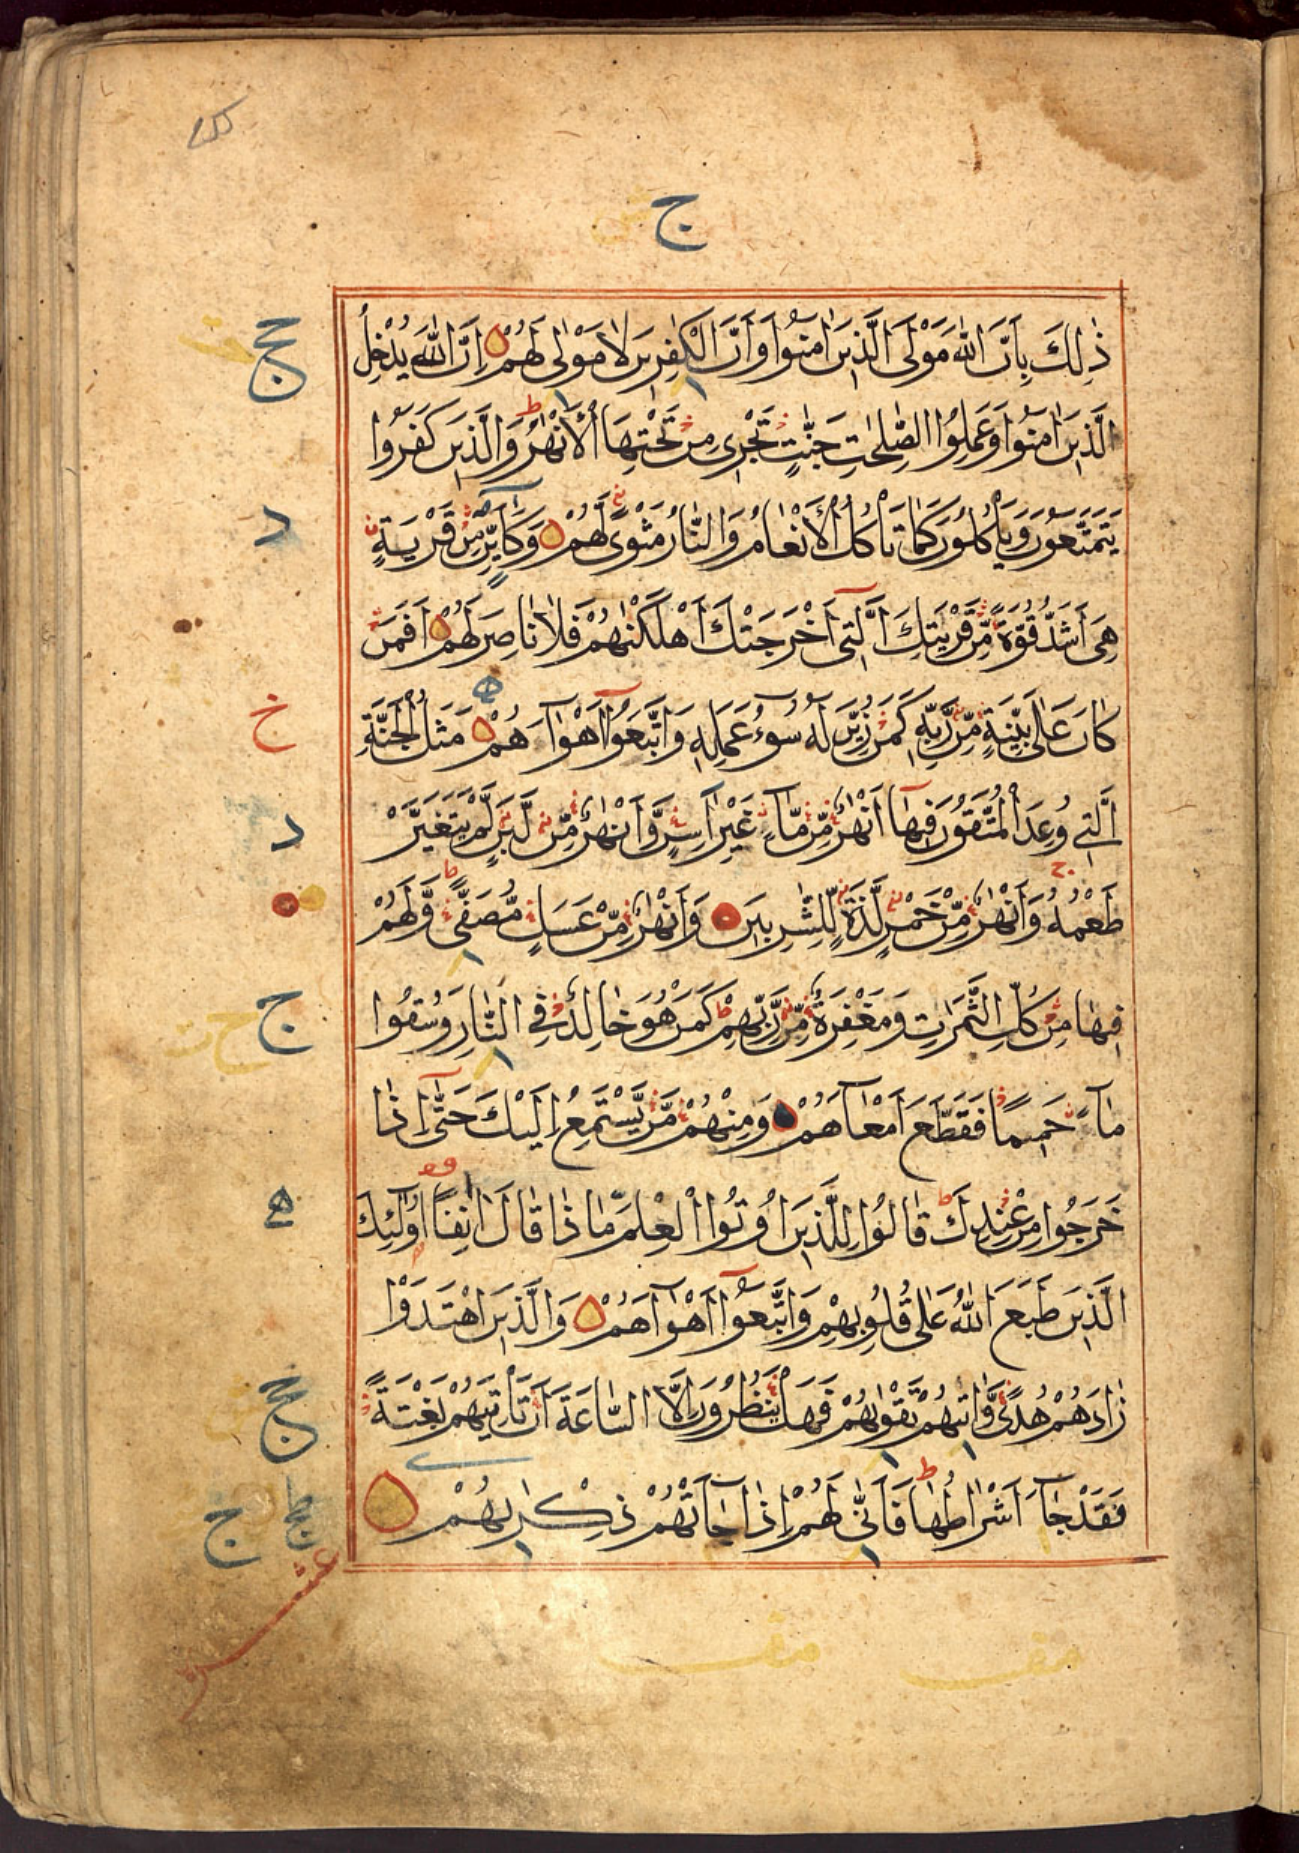 ج
ذٰلِكَ بِاَنَّ اللّٰهَ مَوْلَى الَّذِينَ اٰمَنُوا وَاَنَّ الْكٰفِرِينَ لَا مَوْلٰى لَهُمْ اِنَّ اللّٰهَ يُدْخِلُ
الَّذِينَ اٰمَنُوا وَعَمِلُوا الصّٰلِحٰتِ جَنّٰتٍ تَجْرِى مِنْ تَحْتِهَا الْاَنْهٰرُ وَالَّذِينَ كَفَرُوا
يَتَمَتَّعُونَ وَيَاْكُلُونَ كَمَا تَاْكُلُ الْاَنْعَامُ وَالنَّارُ مَثْوًى لَهُمْ وَكَاَيِّنْ مِّنْ قَرْيَةٍ
هِىَ اَشَدُّ قُوَّةً مِّنْ قَرْيَتِكَ الَّتِى اَخْرَجَتْكَ اَهْلَكْنٰهُمْ فَلَا نَاصِرَ لَهُمْ اَفَمَنْ
كَانَ عَلٰى بَيِّنَةٍ مِّنْ رَّبِّهِ كَمَنْ زُيِّنَ لَهُ سُوۤءُ عَمَلِهِ وَاتَّبَعُوۤا اَهْوَاۤءَهُمْ مَثَلُ الْجَنَّةِ
الَّتِى وُعِدَ الْمُتَّقُونَ فِيهَاۤ اَنْهٰرٌ مِّنْ مَّاۤءٍ غَيْرِ اٰسِنٍ وَّاَنْهٰرٌ مِّنْ لَّبَنٍ لَّمْ يَتَغَيَّرْ
طَعْمُهُ وَاَنْهٰرٌ مِّنْ خَمْرٍ لَّذَّةٍ لِّلشّٰرِبِينَ وَاَنْهٰرٌ مِّنْ عَسَلٍ مُّصَفًّى وَّلَهُمْ
فِيهَا مِنْ كُلِّ الثَّمَرٰتِ وَمَغْفِرَةٌ مِّنْ رَّبِّهِمْ كَمَنْ هُوَ خَالِدٌ فِى النَّارِ وَسُقُوا
مَاۤءً حَمِيمًا فَقَطَّعَ اَمْعَاۤءَهُمْ وَمِنْهُمْ مَّنْ يَّسْتَمِعُ اِلَيْكَ حَتّٰۤى اِذَا
خَرَجُوا مِنْ عِنْدِكَ قَالُوا لِلَّذِينَ اُوتُوا الْعِلْمَ مَاذَا قَالَ اٰنِفًا اُولٰۤئِكَ
الَّذِينَ طَبَعَ اللّٰهُ عَلٰى قُلُوبِهِمْ وَاتَّبَعُوۤا اَهْوَاۤءَهُمْ وَالَّذِينَ اهْتَدَوْا
زَادَهُمْ هُدًى وَّاٰتٰىهُمْ تَقْوٰىهُمْ فَهَلْ يَنْظُرُونَ اِلَّا السَّاعَةَ اَنْ تَاْتِيَهُمْ بَغْتَةً
فَقَدْ جَاۤءَ اَشْرَاطُهَا فَاَنّٰى لَهُمْ اِذَا جَاۤءَتْهُمْ ذِكْرٰىهُمْ
عشر